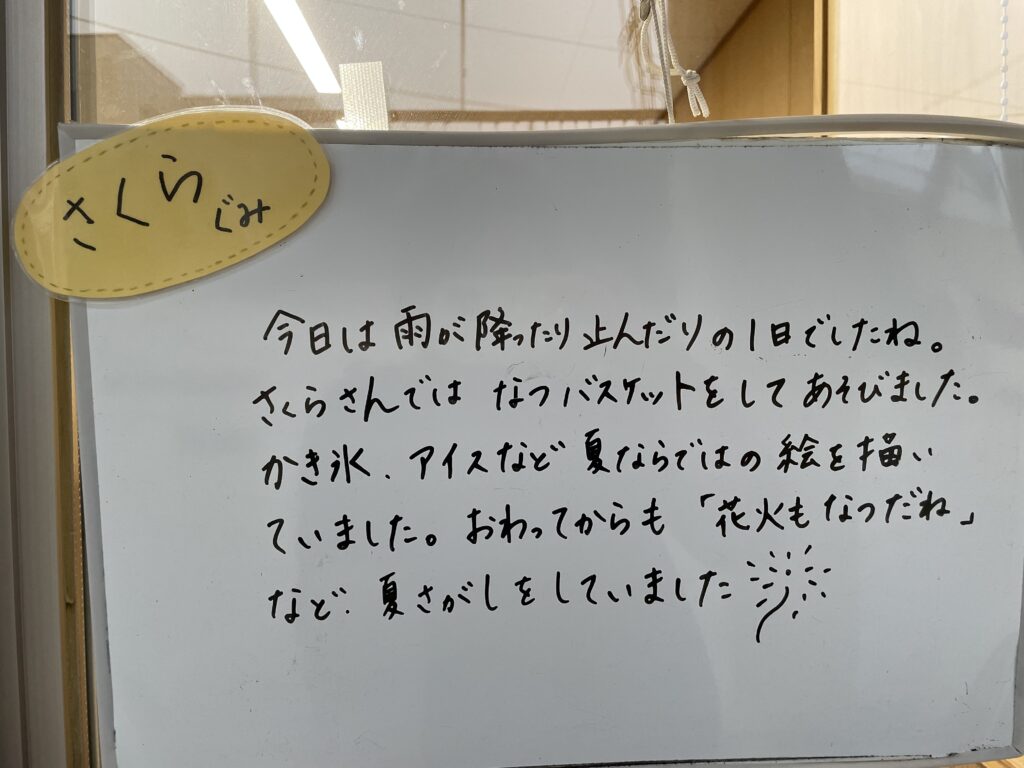 さくらぐみ
今日は雨が降ったり止んだりの1日でしたね。
さくらさんではなつバスケットをしてあそびました。
かき氷、アイスなど夏ならではの絵を描い
ていました。おわってからも「花火もなつだね」
など、夏さがしをしていました